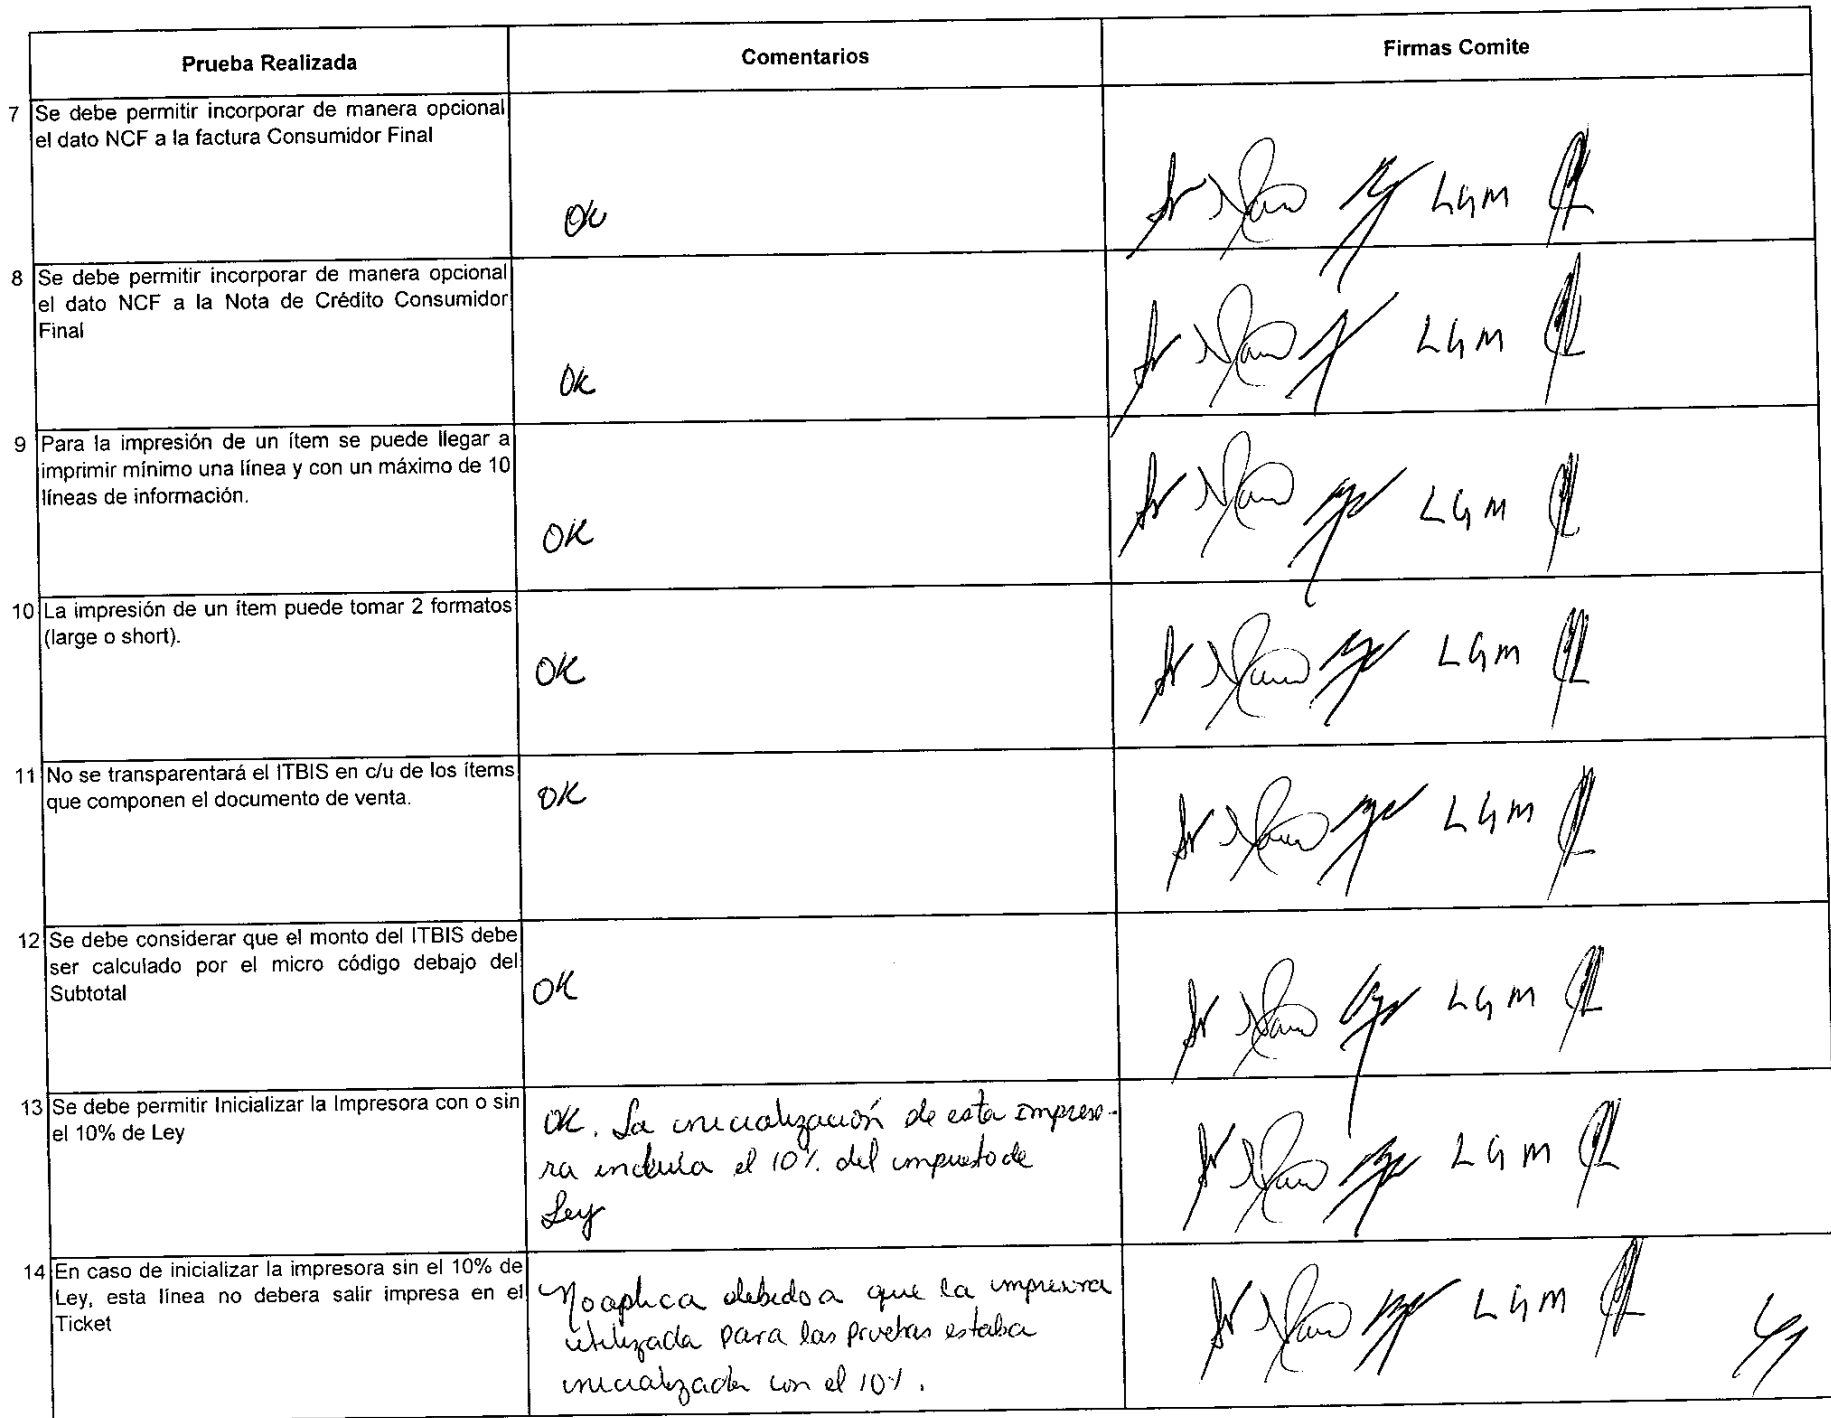 Prueba Realizada
Comentarios
Firmas Comite
7 Se debe permitir incorporar de manera opcional
el dato NCF a la factura Consumidor Final
OK
LGM
8 Se debe permitir incorporar de manera opcional
el dato NCF a la Nota de Crédito Consumidor
Final
OK
LGM
9 Para la impresión de un ítem se puede llegar a
imprimir mínimo una línea y con un máximo de 10
líneas de información.
OK
LGM
10 La impresión de un ítem puede tomar 2 formatos
(large o short).
OK
LGM
11 No se transparentará el ITBIS en c/u de los ítems
que componen el documento de venta.
OK
LGM
12 Se debe considerar que el monto del ITBIS debe
ser calculado por el micro código debajo del
Subtotal
OK
LGM
13 Se debe permitir Inicializar la Impresora con o sin
el 10% de Ley
OK. La inicialización de esta impreso-
ra incluía el 10% del impuesto de
Ley
LGM
14 En caso de inicializar la impresora sin el 10% de
Ley, esta línea no debera salir impresa en el
Ticket
No aplica debido a que la impresora
utilizada para las pruebas estaba
inicializada con el 10%.
LGM